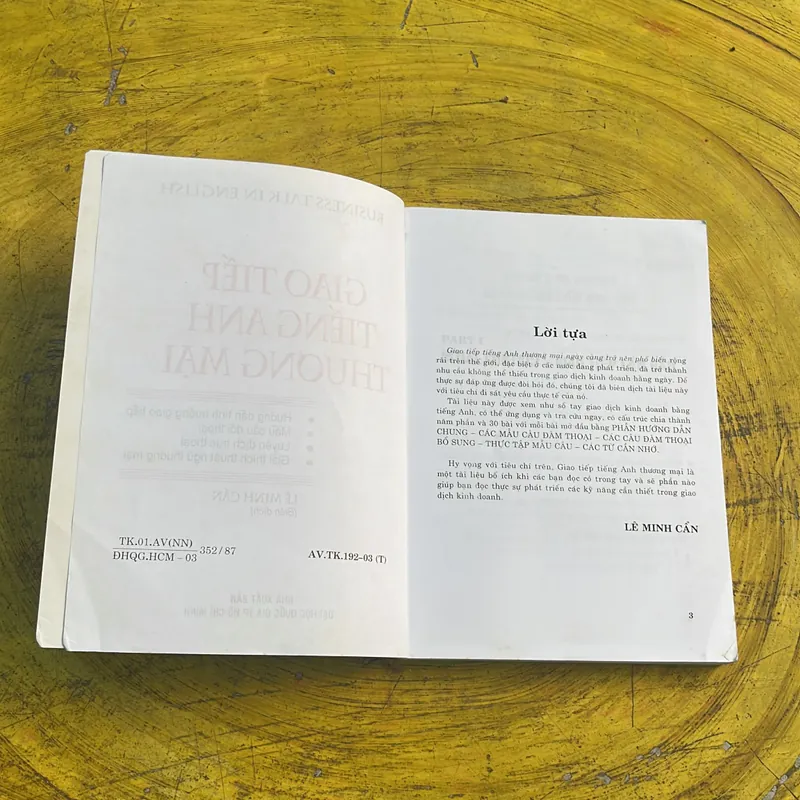 BUSINESS TALK IN ENGLISH
GIAO TIẾP
TIẾNG ANH
THƯƠNG MẠI
Hướng dẫn tình huống giao tiếp
Mẫu câu đối thoại
Luyện dịch thực hành
Giải thích thuật ngữ thương mại
LÊ MINH CẨN
(Biên dịch)
TK.01.AV(NN)
ĐHQG.HCM – 03
352/87
AV.TK.192–03 (T)
NHÀ XUẤT BẢN
ĐẠI HỌC QUỐC GIA TP HỒ CHÍ MINH
Lời tựa
Giao tiếp tiếng Anh thương mại ngày càng trở nên phổ biến rộng
rãi trên thế giới, đặc biệt ở các nước đang phát triển, đã trở thành
nhu cầu không thể thiếu trong giao dịch kinh doanh hằng ngày. Để
thực sự đáp ứng được đòi hỏi đó, chúng tôi đã biên dịch tài liệu này
với tiêu chí đi sát yêu cầu thực tế của nó.
Tài liệu này được xem như sổ tay giao dịch kinh doanh bằng
tiếng Anh, có thể ứng dụng và tra cứu ngay, có cấu trúc chia thành
năm phần và 30 bài với mỗi bài mở đầu bằng PHẦN HƯỚNG DẪN
CHUNG – CÁC MẪU CÂU ĐÀM THOẠI – CÁC CÂU ĐÀM THOẠI
BỔ SUNG – THỰC TẬP MẪU CÂU – CÁC TỪ CẦN NHỚ.
Hy vọng với tiêu chí trên, Giao tiếp tiếng Anh thương mại là
một tài liệu bổ ích khi các bạn đọc có trong tay và sẽ phần nào
giúp bạn đọc thực sự phát triển các kỹ năng cần thiết trong giao
dịch kinh doanh.
LÊ MINH CẨN
3